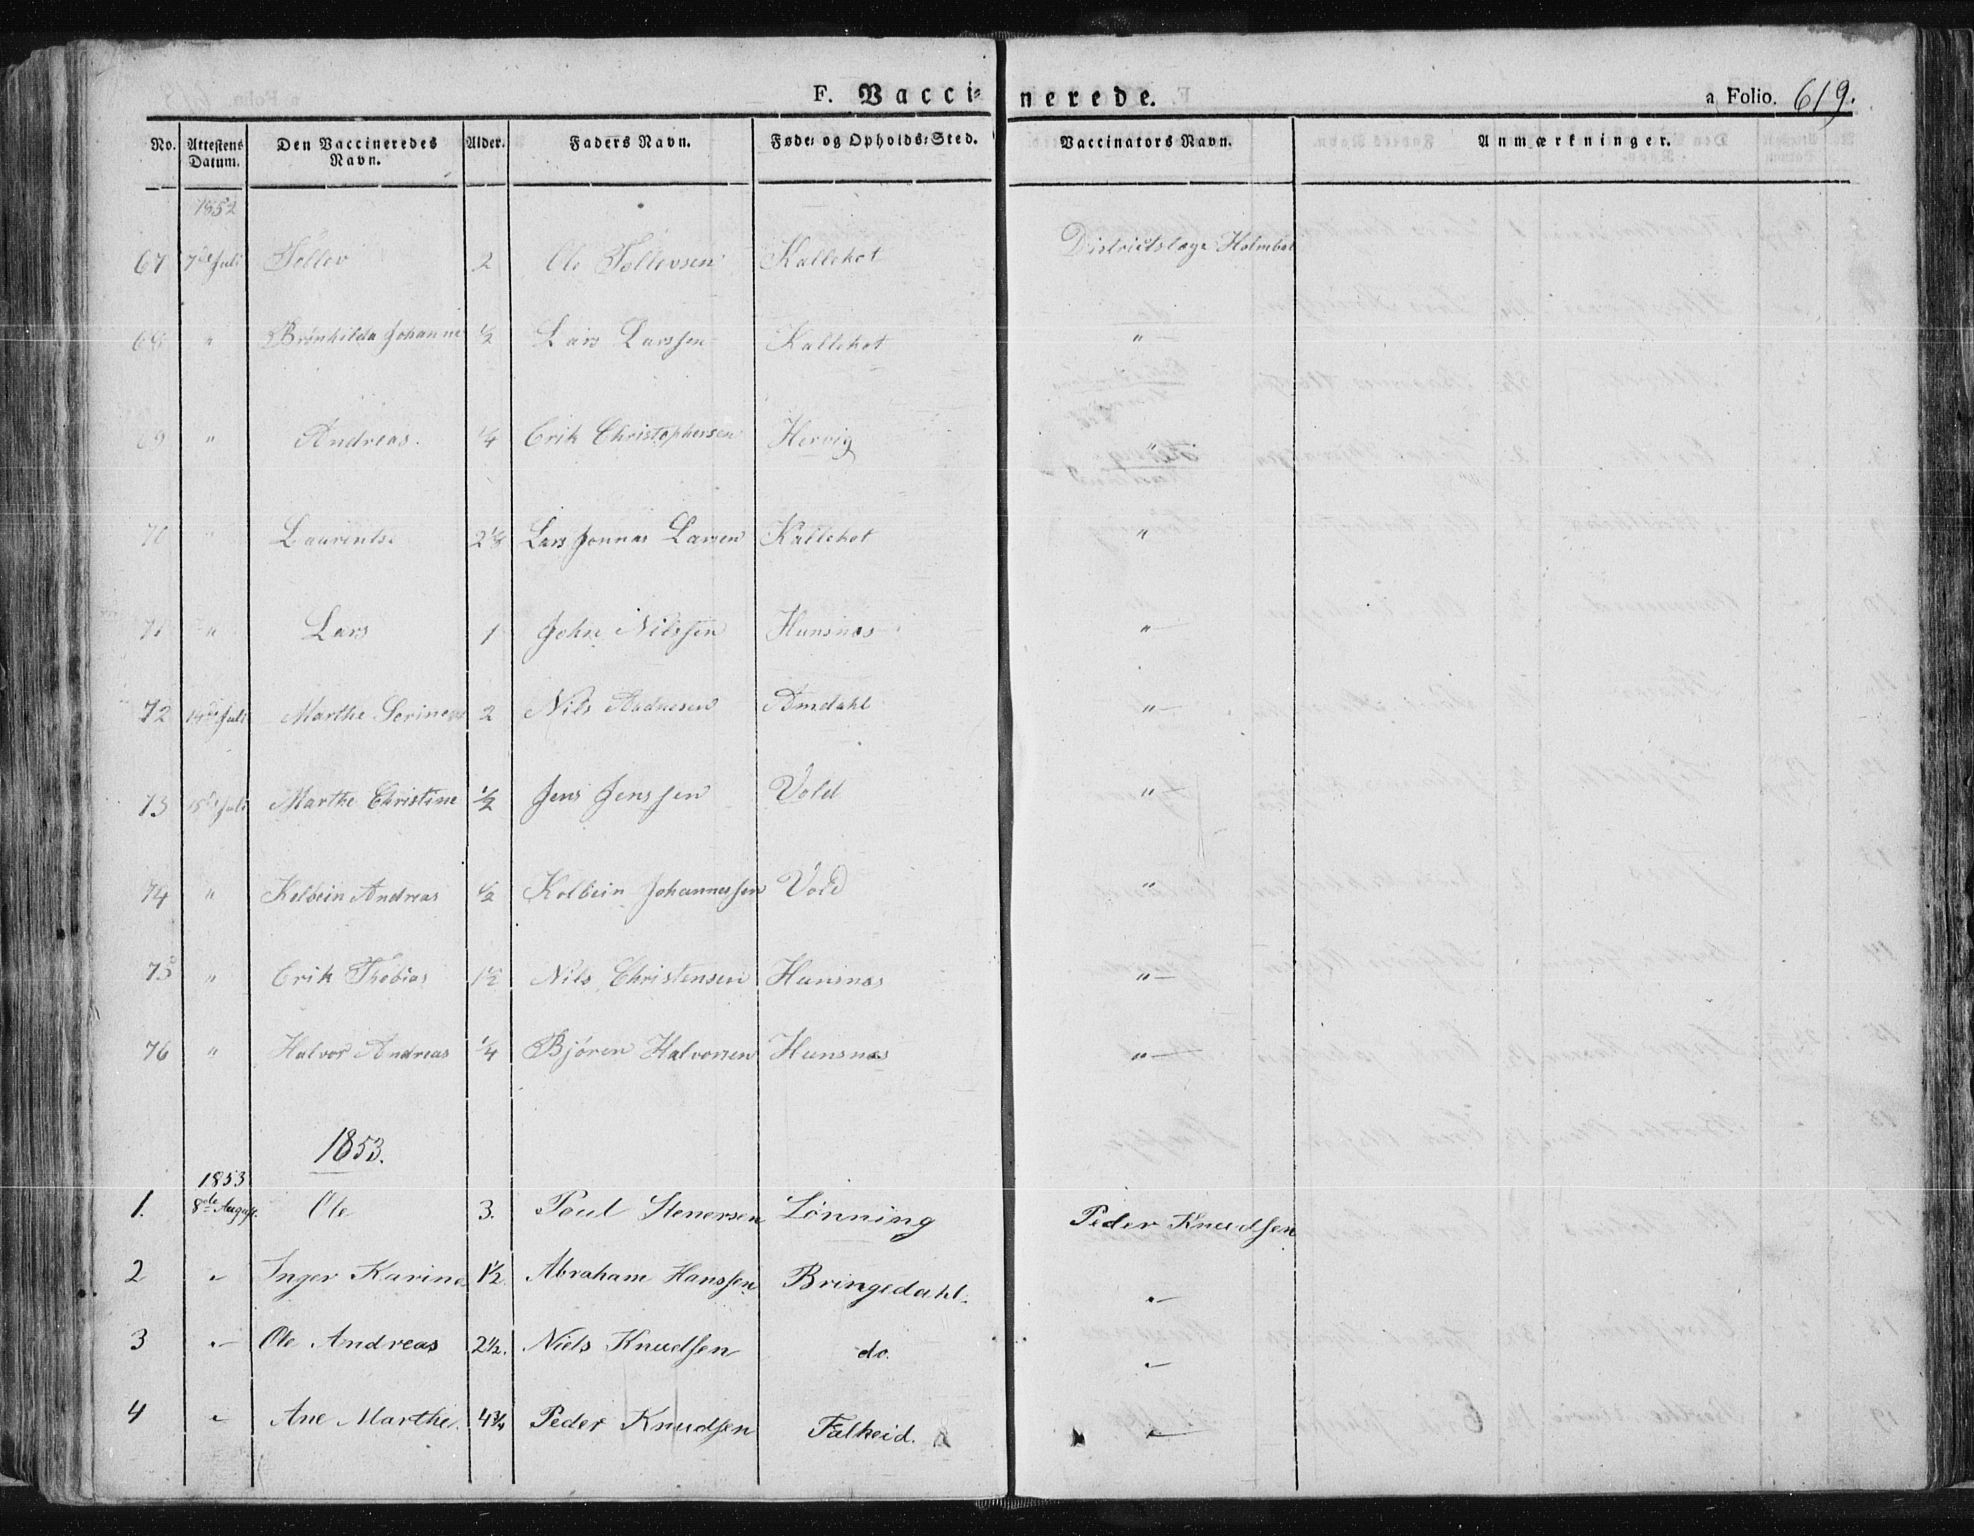 F. Vaccinerede. a Folio. 619.
No. Attestens Datum. Den Vaccineredes Navn. Alder. Faders Navn. Føde- og Opholds-Sted. Vaccinators Navn. Anmærkninger.
1852
67 7de Juli Tollev 2 Ole Tollevsen Kallekot Districtslæge Holmboe
68 " Brønhilda Johanne 1/2 Lars Larssen Kallekot " —
69 " Andreas. 1/4 Erik Christophersen Hervig "
70 " Laurentse 2 1/3 Lars Jonnas Larsen Kallekot "
71 " Lars 1 John Nilssen Hunsnas " —
72 14de Juli Marthe Serine 2 Nils Andresen Amdahl " —
73 15de Juli Marthe Christine 1/2 Jens Jenssen Vold " —
74 " Kolbein Andreas 1/2 Kolbein Johannessen Vold "
75 " Erik Thobias 1 1/2 Nils Christensen Hunsnas " —
76 " Halvor Andreas 1/4 Bjøren Halvorsen Hunsnas " —
1853.
1853
1. 8de August. Ole 3. Paul Stenersen Lønning Peder Knudsen
2 " Inger Karine 1 1/2. Abraham Hanssen Bringedahl. " —
3 " — Ole Andreas 2 1/2. Niels Knudsen do. " —
4 " Ane Marthe. 4 3/4 Peder Knudsen Falkeid. " —